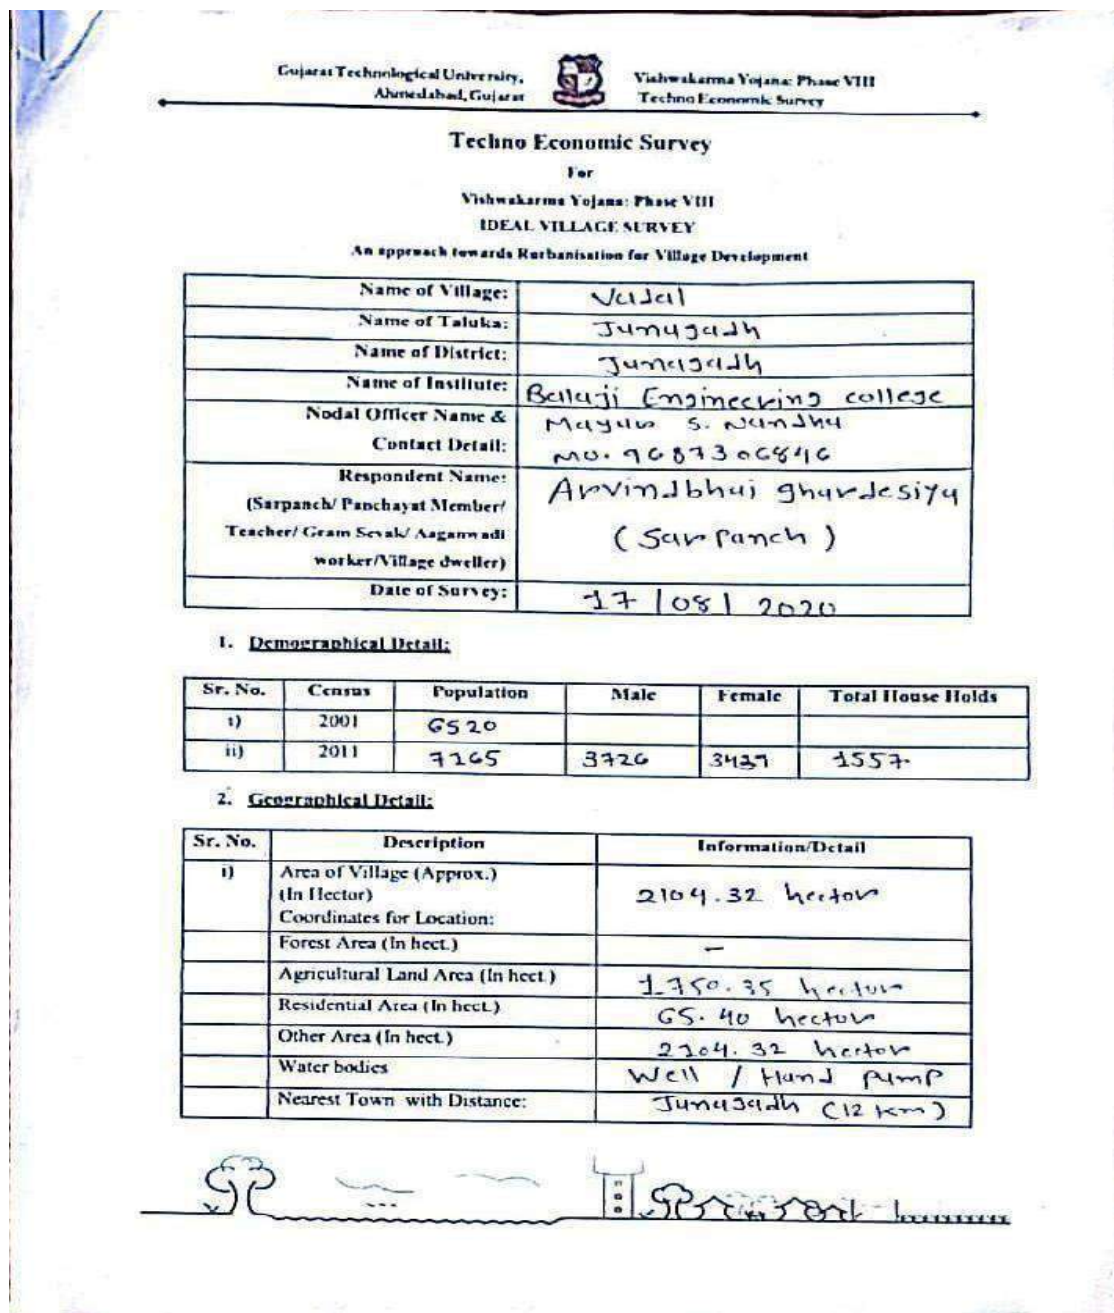 Gujarat Technological University,
Ahmedabad, Gujarat
Vishwakarma Yojana: Phase VIII
Techno Economic Survey
Techno Economic Survey
For
Vishwakarma Yojana: Phase VIII
IDEAL VILLAGE SURVEY
An approach towards Rurbanisation for Village Development
Name of Village: Vadal
Name of Taluka: Junagadh
Name of District: Junagadh
Name of Institute: Balaji Engineering college
Nodal Officer Name & Mayur S. Nandha
Contact Detail: mo. 9687306846
Respondent Name: Arvindbhai ghardesiya
(Sarpanch/ Panchayat Member/
Teacher/ Gram Sevak/ Aaganwadi (Sarpanch)
worker/Village dweller)
Date of Survey: 17/08/2020
1. Demographical Detail:
Sr. No. Census Population Male Female Total House Holds
i) 2001 6520
ii) 2011 7165 3726 1557
2. Geographical Detail:
Sr. No. Description Information/Detail
i) Area of Village (Approx.)
(In Hector) 2104.32 hector
Coordinates for Location:
Forest Area (In hect.) -
Agricultural Land Area (In hect.) 1750.35 hector
Residential Area (In hect.) 65.40 hector
Other Area (In hect.) 2104.32 hector
Water bodies Well / Hand pump
Nearest Town with Distance: Junagadh (12 km)